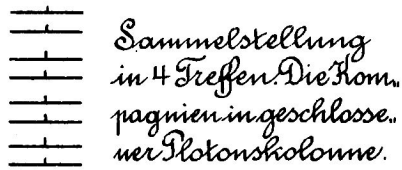 Sammelstellung
in 4 Treffen. Die Kom„
pagnien in geschlosse„
ner Plotonskolonne.